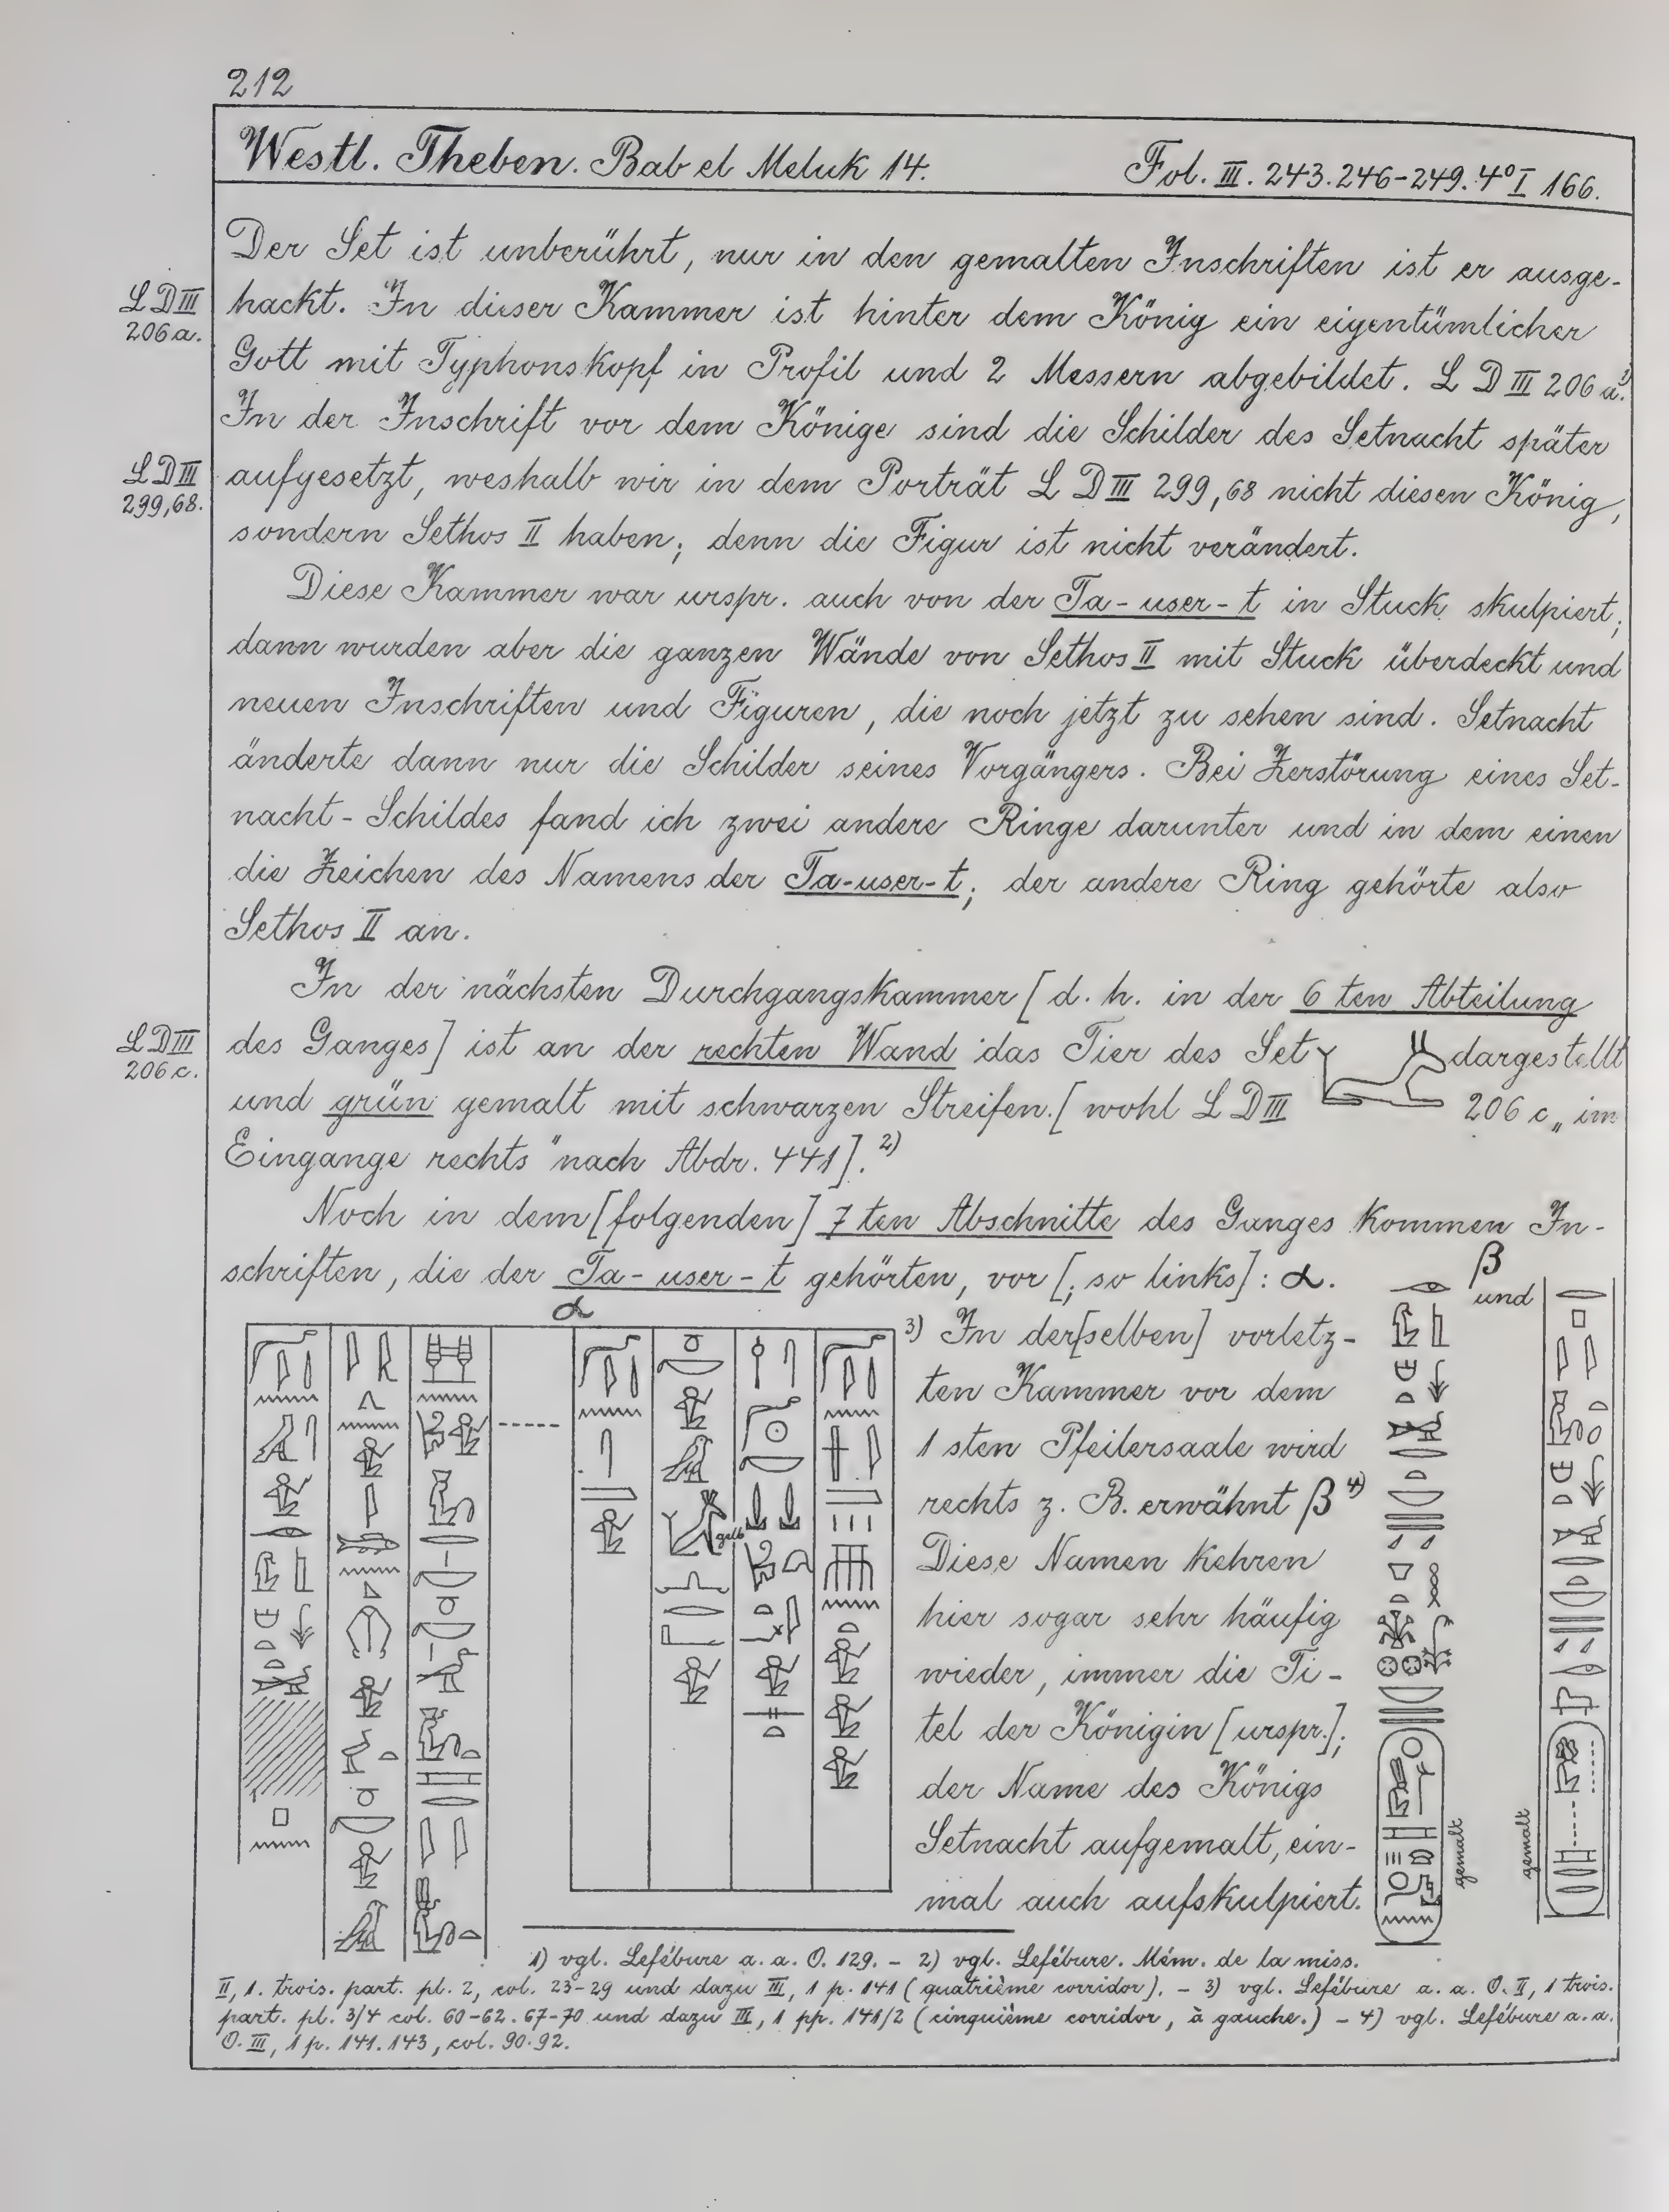 212
Westl. Theben. Bab el Meluk 14. Fol. III. 243. 246-249. 4° I 166.
Der Set ist unberührt, nur in den gemalten Inschriften ist er ausge-
LD III 206 a.
hackt. In dieser Kammer ist hinter dem König ein eigentümlicher
Gott mit Typhonskopf in Profil und 2 Messern abgebildet. L D III 206 a.1)
In der Inschrift vor dem Könige sind die Schilder des Setnacht später
LD III 299,68.
aufgesetzt, weshalb wir in dem Porträt L D III 299,68 nicht diesen König,
sondern Sethos II haben; denn die Figur ist nicht verändert.
Diese Kammer war urspr. auch von der Ta-user-t in Stuck skulpiert;
dann wurden aber die ganzen Wände von Sethos II mit Stuck überdeckt und
neuen Inschriften und Figuren, die noch jetzt zu sehen sind. Setnacht
änderte dann nur die Schilder seines Vorgängers. Bei Zerstörung eines Set-
nacht-Schildes fand ich zwei andere Ringe darunter und in dem einen
die Zeichen des Namens der Ta-user-t; der andere Ring gehörte also
Sethos II an.
In der nächsten Durchgangskammer [d. h. in der 6ten Abteilung
LD III 206 c.
des Ganges] ist an der rechten Wand das Tier des Set dargestellt
und grün gemalt mit schwarzen Streifen. [wohl L D III 206 c „im
Eingange rechts" nach Abdr. 441].2)
Noch in dem [folgenden] 7ten Abschnitte des Ganges kommen In-
schriften, die der Ta-user-t gehörten, vor [; so links]: α.
α
β
und
3) In der[selben] vorletz-
ten Kammer vor dem
1sten Pfeilersaale wird
rechts z. B. erwähnt β 4)
Diese Namen kehren
hier sogar sehr häufig
wieder, immer die Ti-
tel der Königin [urspr.];
der Name des Königs
Setnacht aufgemalt, ein-
mal auch aufskulpiert.
gelb
gemalt
gemalt
1) vgl. Lefébure a. a. O. 129. - 2) vgl. Lefébure. Mém. de la miss.
II, 1. trois. part. pl. 2, col. 23-29 und dazu III, 1 p. 141 (quatrième corridor). - 3) vgl. Lefébure a. a. O. II, 1 trois.
part. pl. 3/4 col. 60-62. 67-70 und dazu III, 1 pp. 141/2 (cinquième corridor, à gauche.) - 4) vgl. Lefébure a. a.
O. III, 1 p. 141. 143, col. 90. 92.